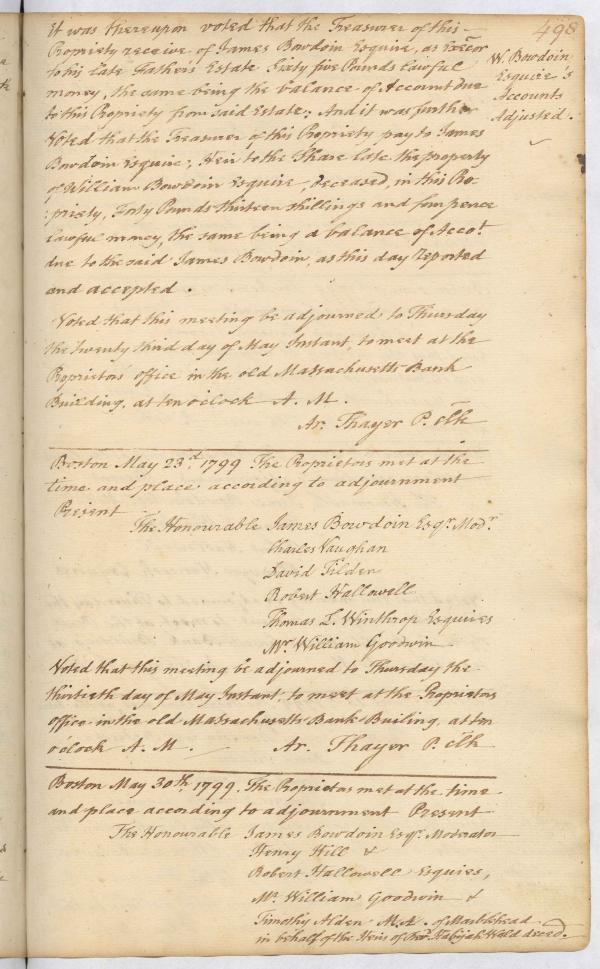 498
It was thereupon voted that the Treasurer of this
Propriety receive of James Bowdoin Esquire, as Execor
to his late Fathers Estate Sixty five Pounds lawful
money, the same being the balance of Account due
to this Propriety from said Estate; And it was further
Voted that the Treasurer of this Propriety pay to James
Bowdoin Esquire; Heir to the Share late the property
of William Bowdoin Esquire, deceased, in this Pro-
:priety, Forty Pounds thirteen shillings and four pence
lawful money, the same being a balance of Acco.t
due to the said James Bowdoin, as this day reported
and accepted.
W. Bowdoin
Esquire's
Accounts
Adjusted.
Voted that this meeting be adjourned to Thursday
the twenty third day of May Instant, to meet at the
Proprietors' office in the old Massachusetts Bank
Building, at ten oClock A. M.
Ar. Thayer P. Clk
Boston May 23.d 1799 The Proprietors met at the
time and place according to adjournment
Present
The Honourable James Bowdoin Esqr. Modr.
Charles Vaughan
David Tilden
Robert Hallowell
Thomas L. Winthrop Esquires
Mr. William Goodwin
Voted that this meeting be adjourned to Thursday the
thirtieth day of May Instant, to meet at the Proprietors
office in the old Massachusetts Bank Builing, at ten
oClock A. M. Ar. Thayer P. Clk
Boston May 30th 1799. The Proprietors met at the time
and place according to adjournment Present
The Honourable James Bowdoin Esqr. Moderator
Henry Hill &
Robert Hallowell Esquires,
Mr. William Goodwin &
Timothy Alden M.A. of Marblehead
in behalf of the Heirs of Revd. Habijah Weld deced.